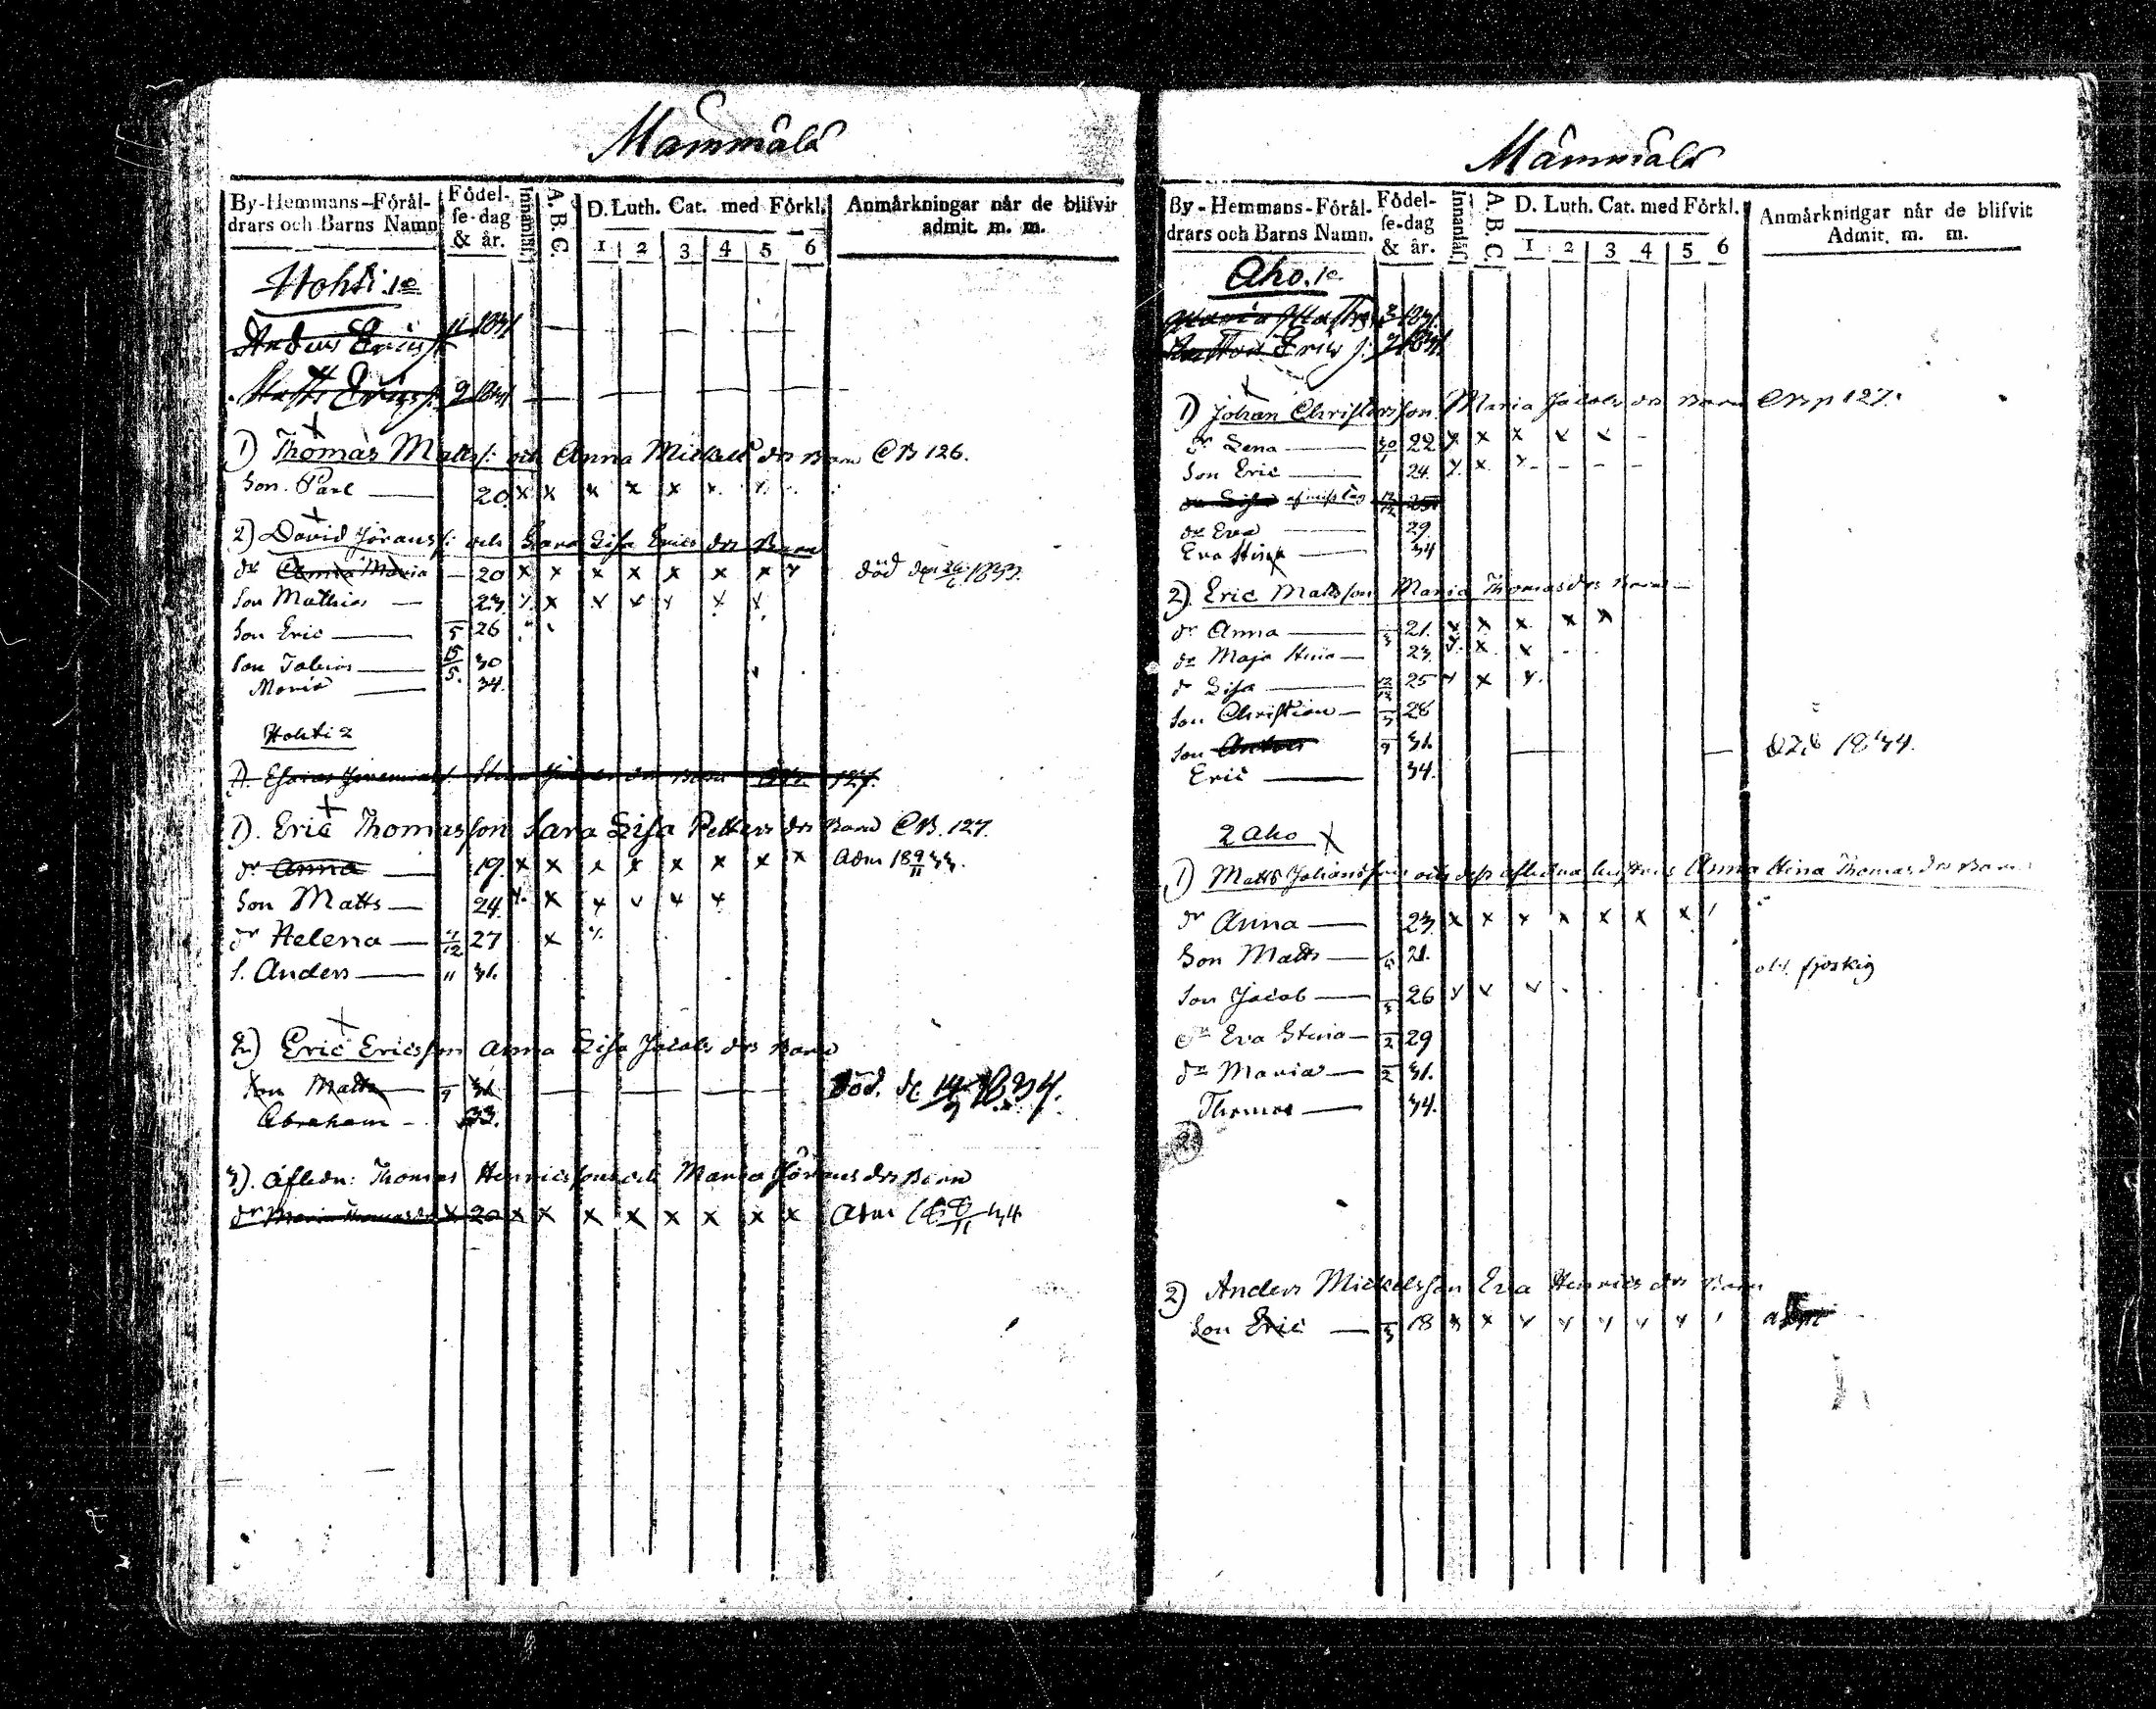 Mämmälä
By-Hemmans-Föräl-
drars och Barns Namn
Födel-
se-dag
& år.
Innanläsn.
A. B. C.
D. Luth. Cat. med Förkl.
1 2 3 4 5 6
Anmärkningar når de blifvit
admit. m. m.
Hohti 1e
Anders Ericss: 1831
Matts Ericss: 9 1831
1) Thomas Matts: och Anna Mickels dr Barn CB 126.
Son Paul 20 x x x x x x x
2) David Jöranss: och Sara Lisa Erics dr Barn
dr Anna Maria 20 x x x x x x x x död den 26/6 1833.
Son Mathias 23 x x x x x x x
Son Eric 5 26
Son Tobias 15/5 30
Maria 34.
Hohti 2
1. Esaias Jeremiass: Stina dr Barn 127.
1). Eric Thomasson Sara Lisa Petters dr Barn CB. 127.
dr Anna 19 x x x x x x x x Adm 18 9/11 33.
Son Matts 24. x x x x x x
dr Helena 4/12 27 x x
S. Anders 11 31.
2) Eric Ericsson Anna Lisa Jacobs dr Barn
Son Matts 9 31 Död. d 14/9 1834.
Abraham 33.
3). Afledn: Thomas Henricssons och Maria Jörans dr Barn
dr Maria Thomasdr x 20 x x x x x x x x Adm 18 9/11 34
Mämmälä
By-Hemmans-Föräl-
drars och Barns Namn.
Födel-
se-dag
& år.
Innanläsn.
A B. C.
D. Luth. Cat. med Förkl.
1 2 3 4 5 6
Anmärkningar når de blifvit
Admit. m. m.
Aho. 1e
Maria 1831.
Eric 1831
1) Johan Christersson Maria Jacobs dr Barn CB p 127.
dr Lena 30/1 22 x x x x x -
Son Eric 24. x x x - - - -
dr Lisa 12/12 25
dr Eva 29.
Eva Stina 34
2). Eric Mattsson Maria Thomas dr Barn
dr Anna 3 21. x x x x x
dr Maja Stina 23. x x x
dr Lisa 12/12 25 x x x
Son Christian 3 28
Son Anders 9 31. 1834.
Eric 34.
2 Aho
1) Matts Johansson och dess aflidna hustrus Anna Stina Thomas dr Barn
dr Anna 23. x x x x x x x
Son Matts 21.
Son Jacob 3 26 x x x
dr Eva Stina 2 29
dr Maria 2 31.
Thomas 34.
2) Anders Mickelsson Eva Henrics dr Barn
Son Eric 3 18 x x x x x x x